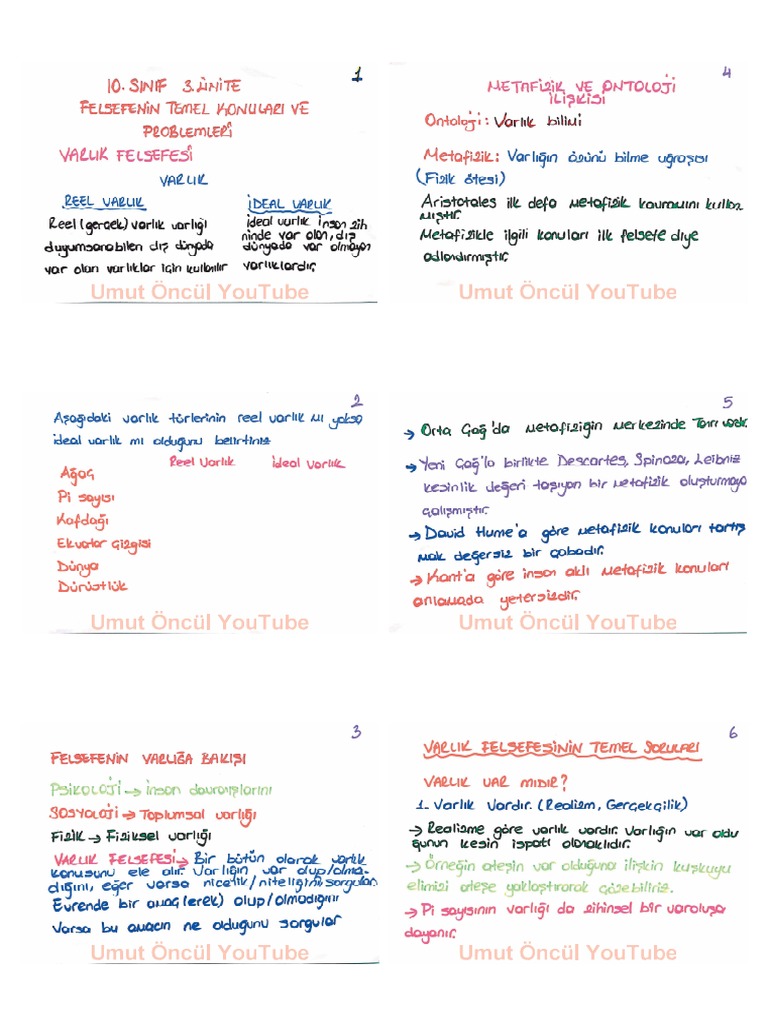 1
10. SINIF 3. ÜNİTE
FELSEFENİN TEMEL KONULARI VE
PROBLEMLERİ
VARLIK FELSEFESİ
VARLIK
REEL VARLIK
Reel (gerçek) varlık varlığı
duyumsanabilen dış dünyada
var olan varlıklar için kullanılır
İDEAL VARLIK
ideal varlık insan zih
ninde var olan, dış
dünyada var olmayan
varlıklardır.
Umut Öncül YouTube
2
Aşağıdaki varlık türlerinin reel varlık mı yoksa
ideal varlık mı olduğunu belirtiniz
Reel Varlık İdeal Varlık
Ağaç
Pi sayısı
Kafdağı
Ekvator Çizgisi
Dünya
Dürüstlük
Umut Öncül YouTube
3
FELSEFENİN VARLIĞA BAKIŞI
PSİKOLOJİ → insan davranışlarını
SOSYOLOJİ → Toplumsal varlığı
Fizik → Fiziksel varlığı
VARLIK FELSEFESİ → Bir bütün olarak varlık
konusunu ele alır. Varlığın var olup/olma-
dığını, eğer varsa nicelik/niteliğini sorgular.
Evrende bir amaç(erek) olup/olmadığını
Varsa bu amacın ne olduğunu sorgular
Umut Öncül YouTube
4
METAFİZİK VE ONTOLOJİ
İLİŞKİSİ
Ontoloji: Varlık bilimi
Metafizik: Varlığın özünü bilme uğraşısı
(Fizik ötesi)
Aristotales ilk defa metafizik kavramını kullan
mıştır.
Metafizikle ilgili konuları ilk felsefe diye
adlandırmıştır.
Umut Öncül YouTube
5
→ Orta Çağ'da metafiziğin merkezinde Tanrı vardır.
→ Yeni Çağ'la birlikte Descartes, Spinoza, Leibniz
kesinlik değeri taşıyan bir metafizik oluşturmaya
çalışmıştır.
→ David Hume'a göre metafizik konuları tartış
mak değersiz bir çabadır.
→ Kant'a göre insan aklı metafizik konuları
anlamada yetersizdir.
Umut Öncül YouTube
6
VARLIK FELSEFESİNİN TEMEL SORULARI
VARLIK VAR MIDIR?
1- Varlık Vardır. (Realizm, Gerçekçilik)
→ Realizme göre varlık vardır. Varlığın var oldu
ğunun kesin ispatı olanaklıdır.
→ Örneğin ateşin var olduğuna ilişkin kuşkuyu
elimizi ateşe yaklaştırarak çözebiliriz.
→ Pi sayısının varlığı da zihinsel bir varoluşa
dayanır.
Umut Öncül YouTube